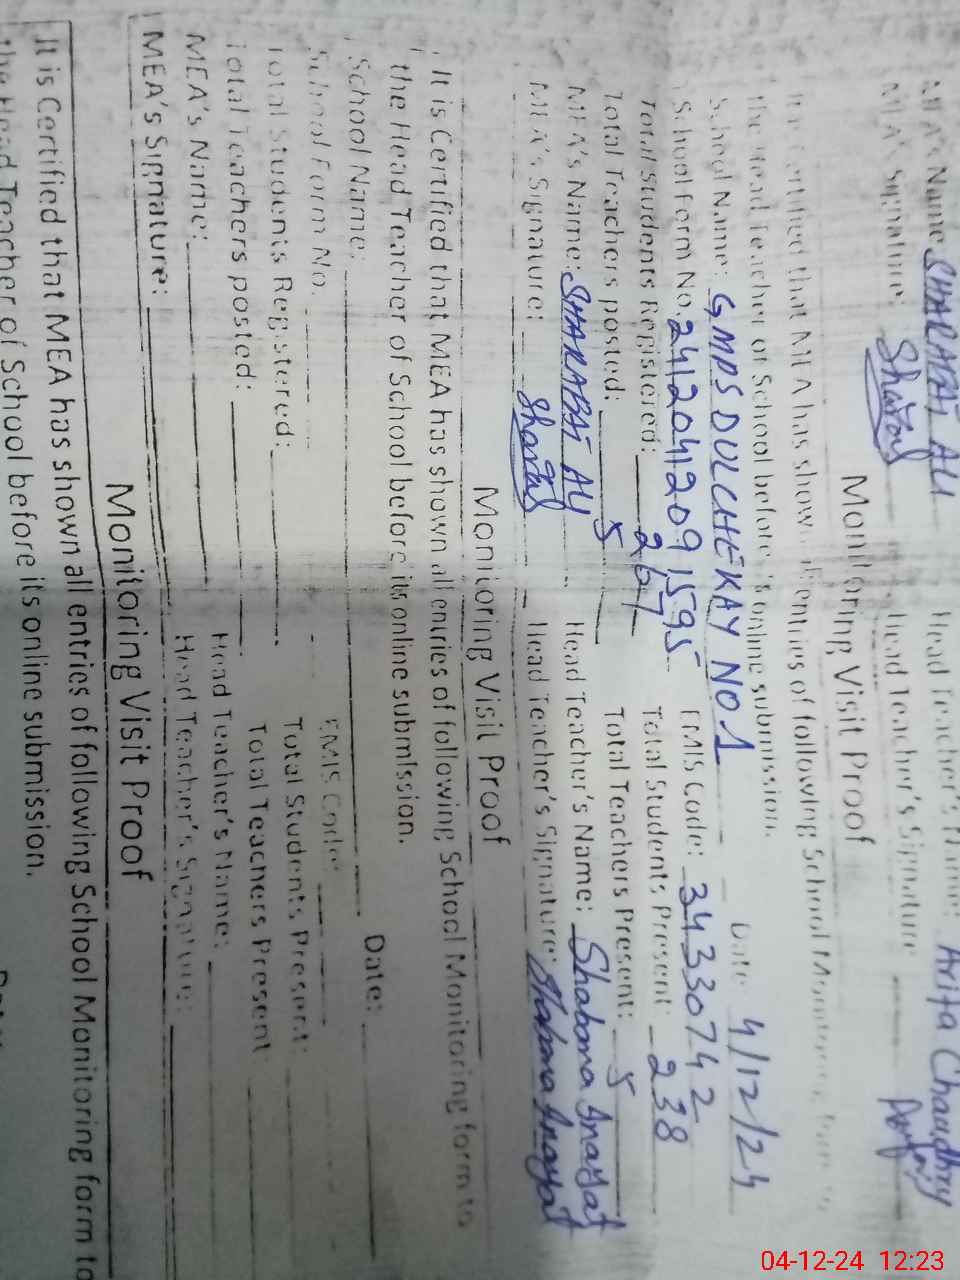 MEA's Name SHARAFAT ALI Head Teacher's Name: Arifa Chaudhry
MEA's Signature: Head Teacher's Signature
Monitoring Visit Proof
It is certified that MEA has shown all entries of following School Monitoring form to
the Head Teacher of School before its online submission.
School Name: GMPS DULCHEKAY NO 1 Date 4/12/24
School Form No. 24120412091595 EMIS Code: 34330742
Total students Registered: 267 Total Students Present: 238
Total Teachers posted: 5 Total Teachers Present: 5
MEA's Name: SHARAFAT ALI Head Teacher's Name: Shabana Inayat
MEA's Signature: Head Teacher's Signature: Shabana Inayat
Monitoring Visit Proof
It is Certified that MEA has shown all entries of following School Monitoring form to
the Head Teacher of School before its online submission.
School Name: Date:
School Form No. EMIS Code:
Total Students Registered: Total Students Present:
Total Teachers posted: Total Teachers Present
MEA's Name: Head Teacher's Name:
MEA's Signature: Head Teacher's Signature:
Monitoring Visit Proof
It is Certified that MEA has shown all entries of following School Monitoring form to
the Head Teacher of School before its online submission.
04-12-24 12:23